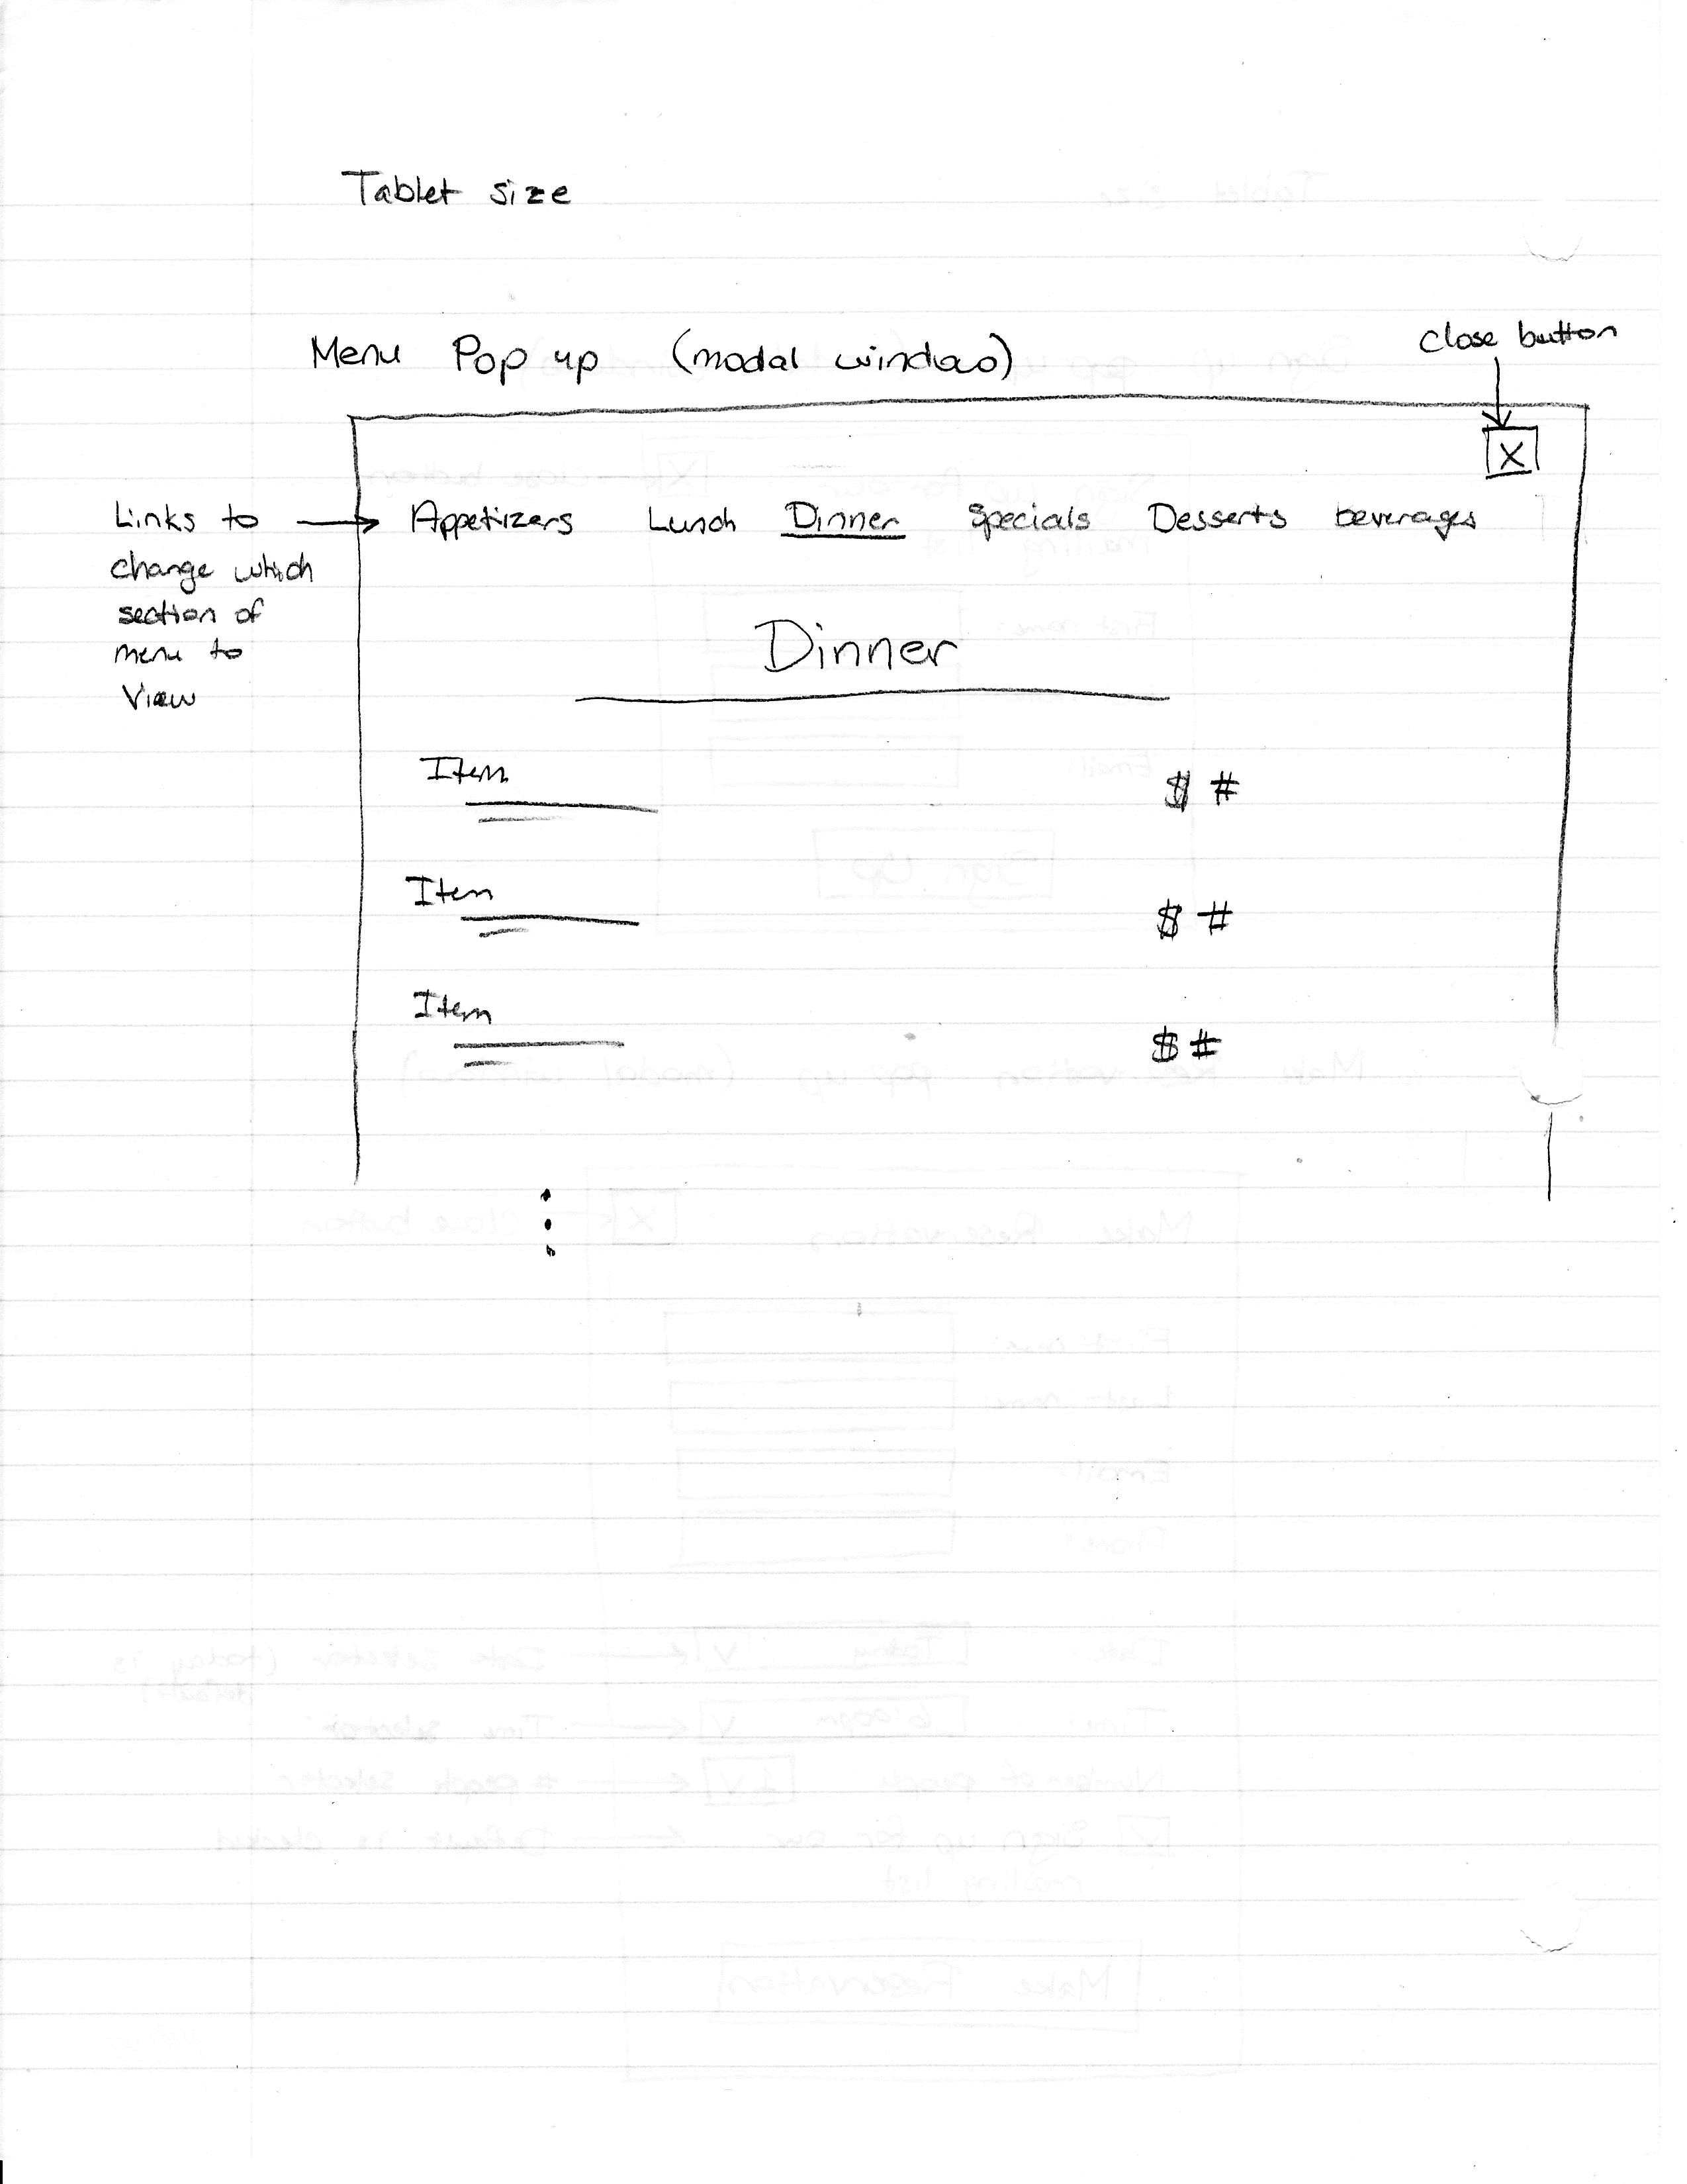 Tablet size
Menu Pop up (modal window)
Close button
X
Links to change which section of menu to view
Appetizers Lunch Dinner Specials Desserts beverages
Dinner
Item
$ #
Item
$ #
Item
$ #